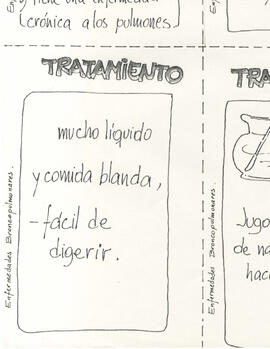 y tiene una enfermedad
(crónica a los pulmones)
TRATAMIENTO
mucho líquido
y comida blanda,
-fácil de
digerir.
Enfermedades Broncopulmonares.
TRA
Jugo
de na
haci
Enfermedades Broncopulmonares.